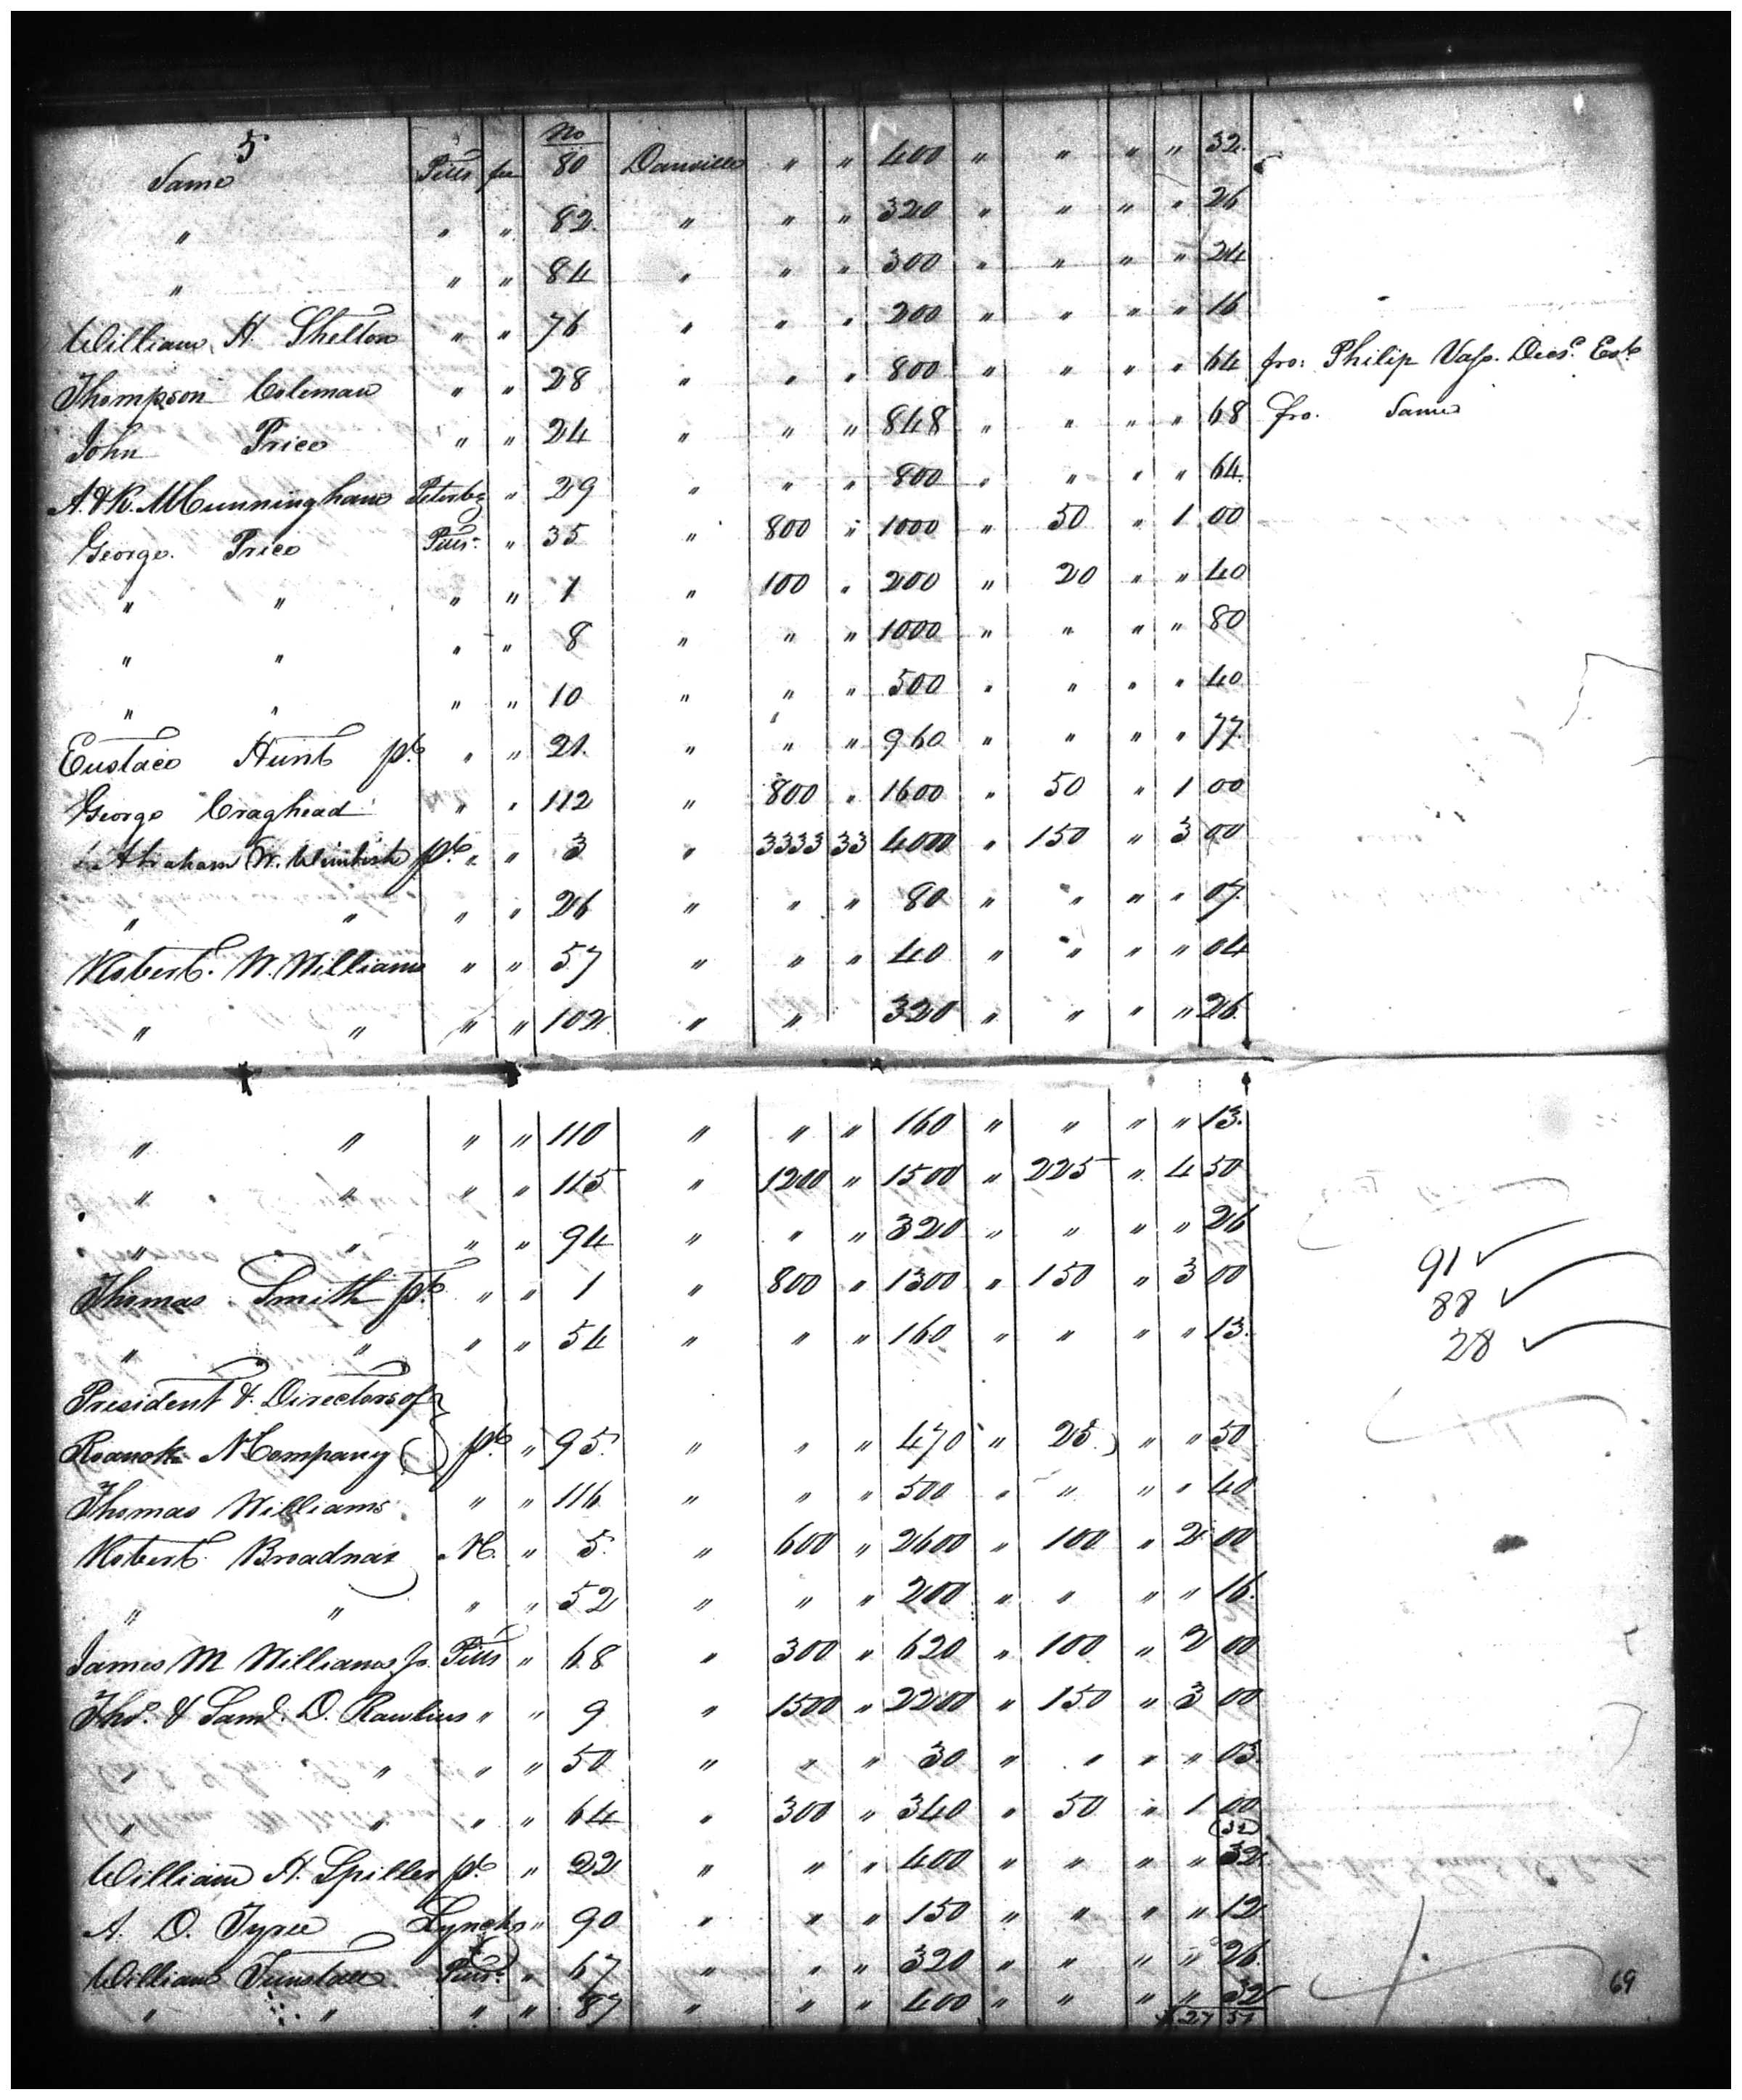 5
No
Same Pitts fee 80 Danville " " 400 " " " " 32
" " " 82 " " " 320 " " " " 26
" " " 84 " " " 300 " " " " 24
William H. Shelton " " 76 " " " 200 " " " " 16
Thompson Coleman " " 28 " " " 800 " " " " 64 fro: Philip Vass. Decsd. Est.
John Price " " 24 " " " 848 " " " " 68 fro. Same
A. & R. McCunningham Petersbg " 29 " " " 800 " " " " 64
George Price Pitts: " 35 " 800 " 1000 " 50 " 1 00
" " " " 1 " 100 " 200 " 20 " " 40
" " " " 8 " " " 1000 " " " " 80
" " " " 10 " " " 500 " " " " 40
Eustace Hunt pt. " " 21 " " " 960 " " " " 77
George Craghead " " 112 " 800 " 1600 " 50 " 1 00
Abraham W. Wimbish pt. " " 3 " 3333 33 4000 " 150 " 3 00
" " " " 26 " " " 80 " " " " 07
Robert W. Williams " " 57 " " " 40 " " " " 04
" " " " 102 " " 320 " " " " 26
" " " " 110 " " " 160 " " " " 13
" " " " 115 " 1200 " 1500 " 225 " 4 50
" " " " 94 " " " 320 " " " " 26
91
Thomas Smith pt. " " 1 " 800 " 1300 " 150 " 3 00
88
" " " " 54 " " " 160 " " " " 13
28
President & Directors of
Roanoke N Company pt. " 95 " " " 470 " 25 " " 50
Thomas Williams " " 116 " " " 500 " " " " 40
Robert Broadnax NC. " 5 " 600 " 2600 " 100 " 2 00
" " " " 52 " " " 200 " " " " 16
James M Williams Jr. Pitts " 68 " 300 " 620 " 100 " 2 00
Thos. & Saml. D. Rawlins " " 9 " 1500 " 2200 " 150 " 3 00
" " " " 50 " " " 30 " " " " 03
" " " " 64 " 300 " 340 " 50 " 1 00
(32)
William H. Spiller pt. " 22 " " " 400 " " " " 32
A. D. Tyree Lynchg " 90 " " " 150 " " " " 12
William Tunstall Pitts: " 67 " " " 320 " " " " 26
" " " " 87 " " " 400 " " " " 32
69
$27 57